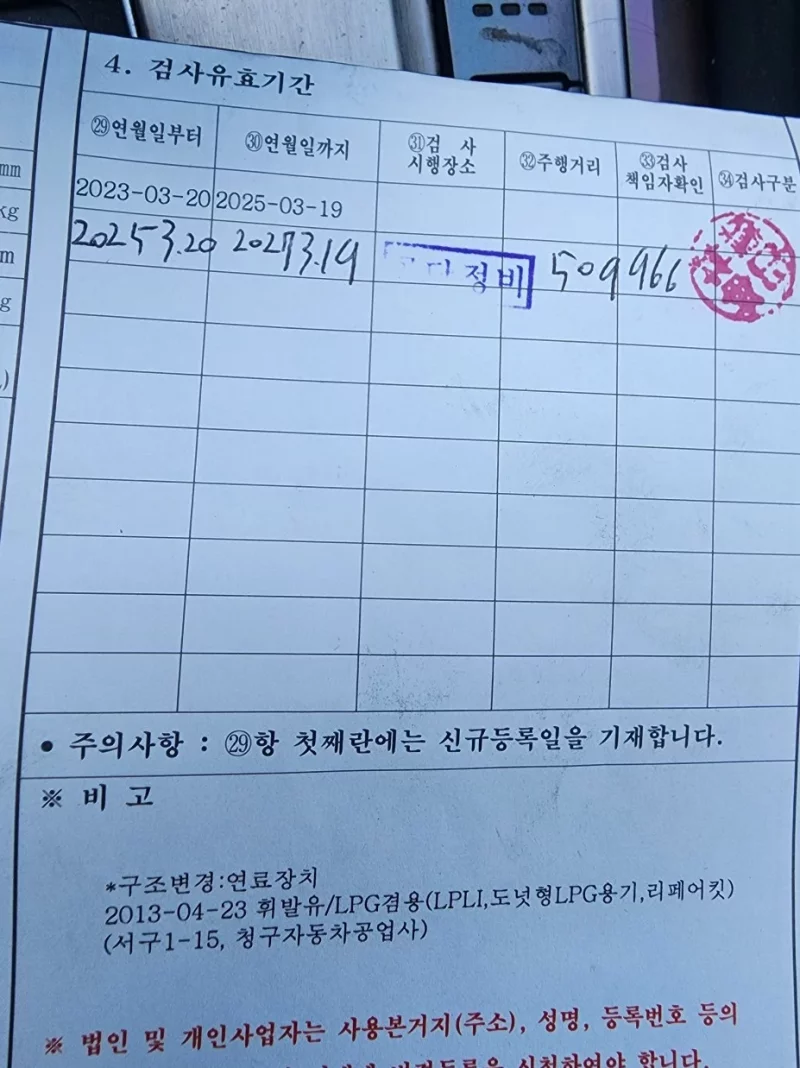 4. 검사유효기간
㉙연월일부터 ㉚연월일까지 ㉛검 사 시행장소 ㉜주행거리 ㉝검사 책임자확인 ㉞검사구분
2023-03-20 2025-03-19
2025 3.20 2027 3.19 정비 509966
mm
kg
m
g
)
● 주의사항 : ㉙항 첫째란에는 신규등록일을 기재합니다.
※ 비 고
*구조변경:연료장치
2013-04-23 휘발유/LPG겸용(LPLI,도넛형LPG용기,리페어킷)
(서구1-15, 청구자동차공업사)
※ 법인 및 개인사업자는 사용본거지(주소), 성명, 등록번호 등의
신청하여야 합니다.